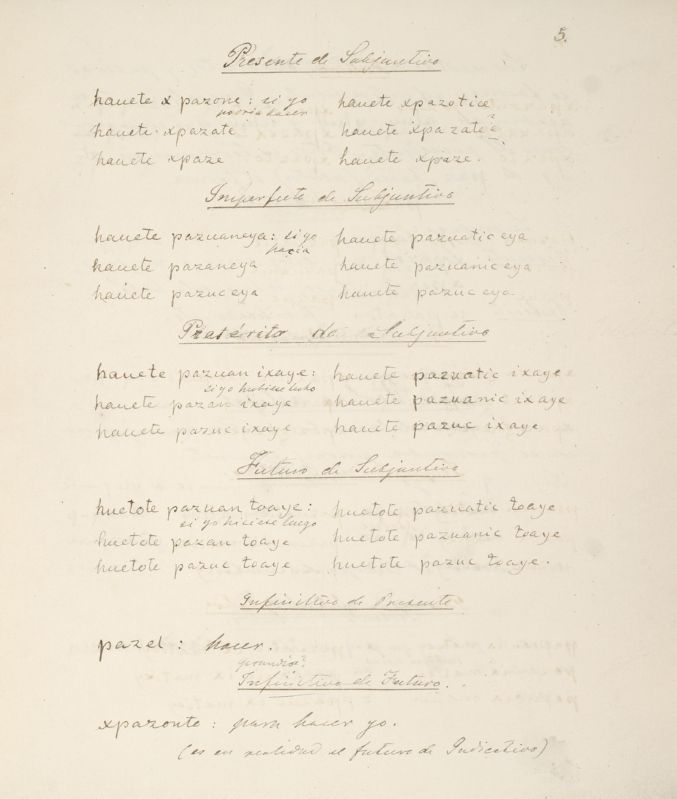 5.
Presente de Subjuntivo
hauete xpazone: si yo hauete xpazotice
podria hacer
hauete xpazate hauete xpazate?
hauete xpaze hauete xpaze.
Imperfecto de Subjuntivo
hauete pazuaneya: si yo hauete pazuatic eya
hacia
hauete pazaneya hauete pazuanic eya
hauete pazuc eya hauete pazuc eya.
Pretérito de Subjuntivo
hauete pazuan ixaye: hauete pazuatic ixaye
si yo hubiese
hauete pazan ixaye hauete pazuanic ixaye
hauete pazuc ixaye hauete pazuc ixaye
Futuro de Subjuntivo
huetote pazuan toaye: huetote pazuatic toaye
si yo hiciese luego
huetote pazan toaye huetote pazuanic toaye
huetote pazuc toaye huetote pazuc toaye.
Infinitivo de Presente
pazel: hacer.
gerundio?
Infinitivo de Futuro.
xpazonte: para hacer yo.
(es en realidad el futuro de Indicativo)